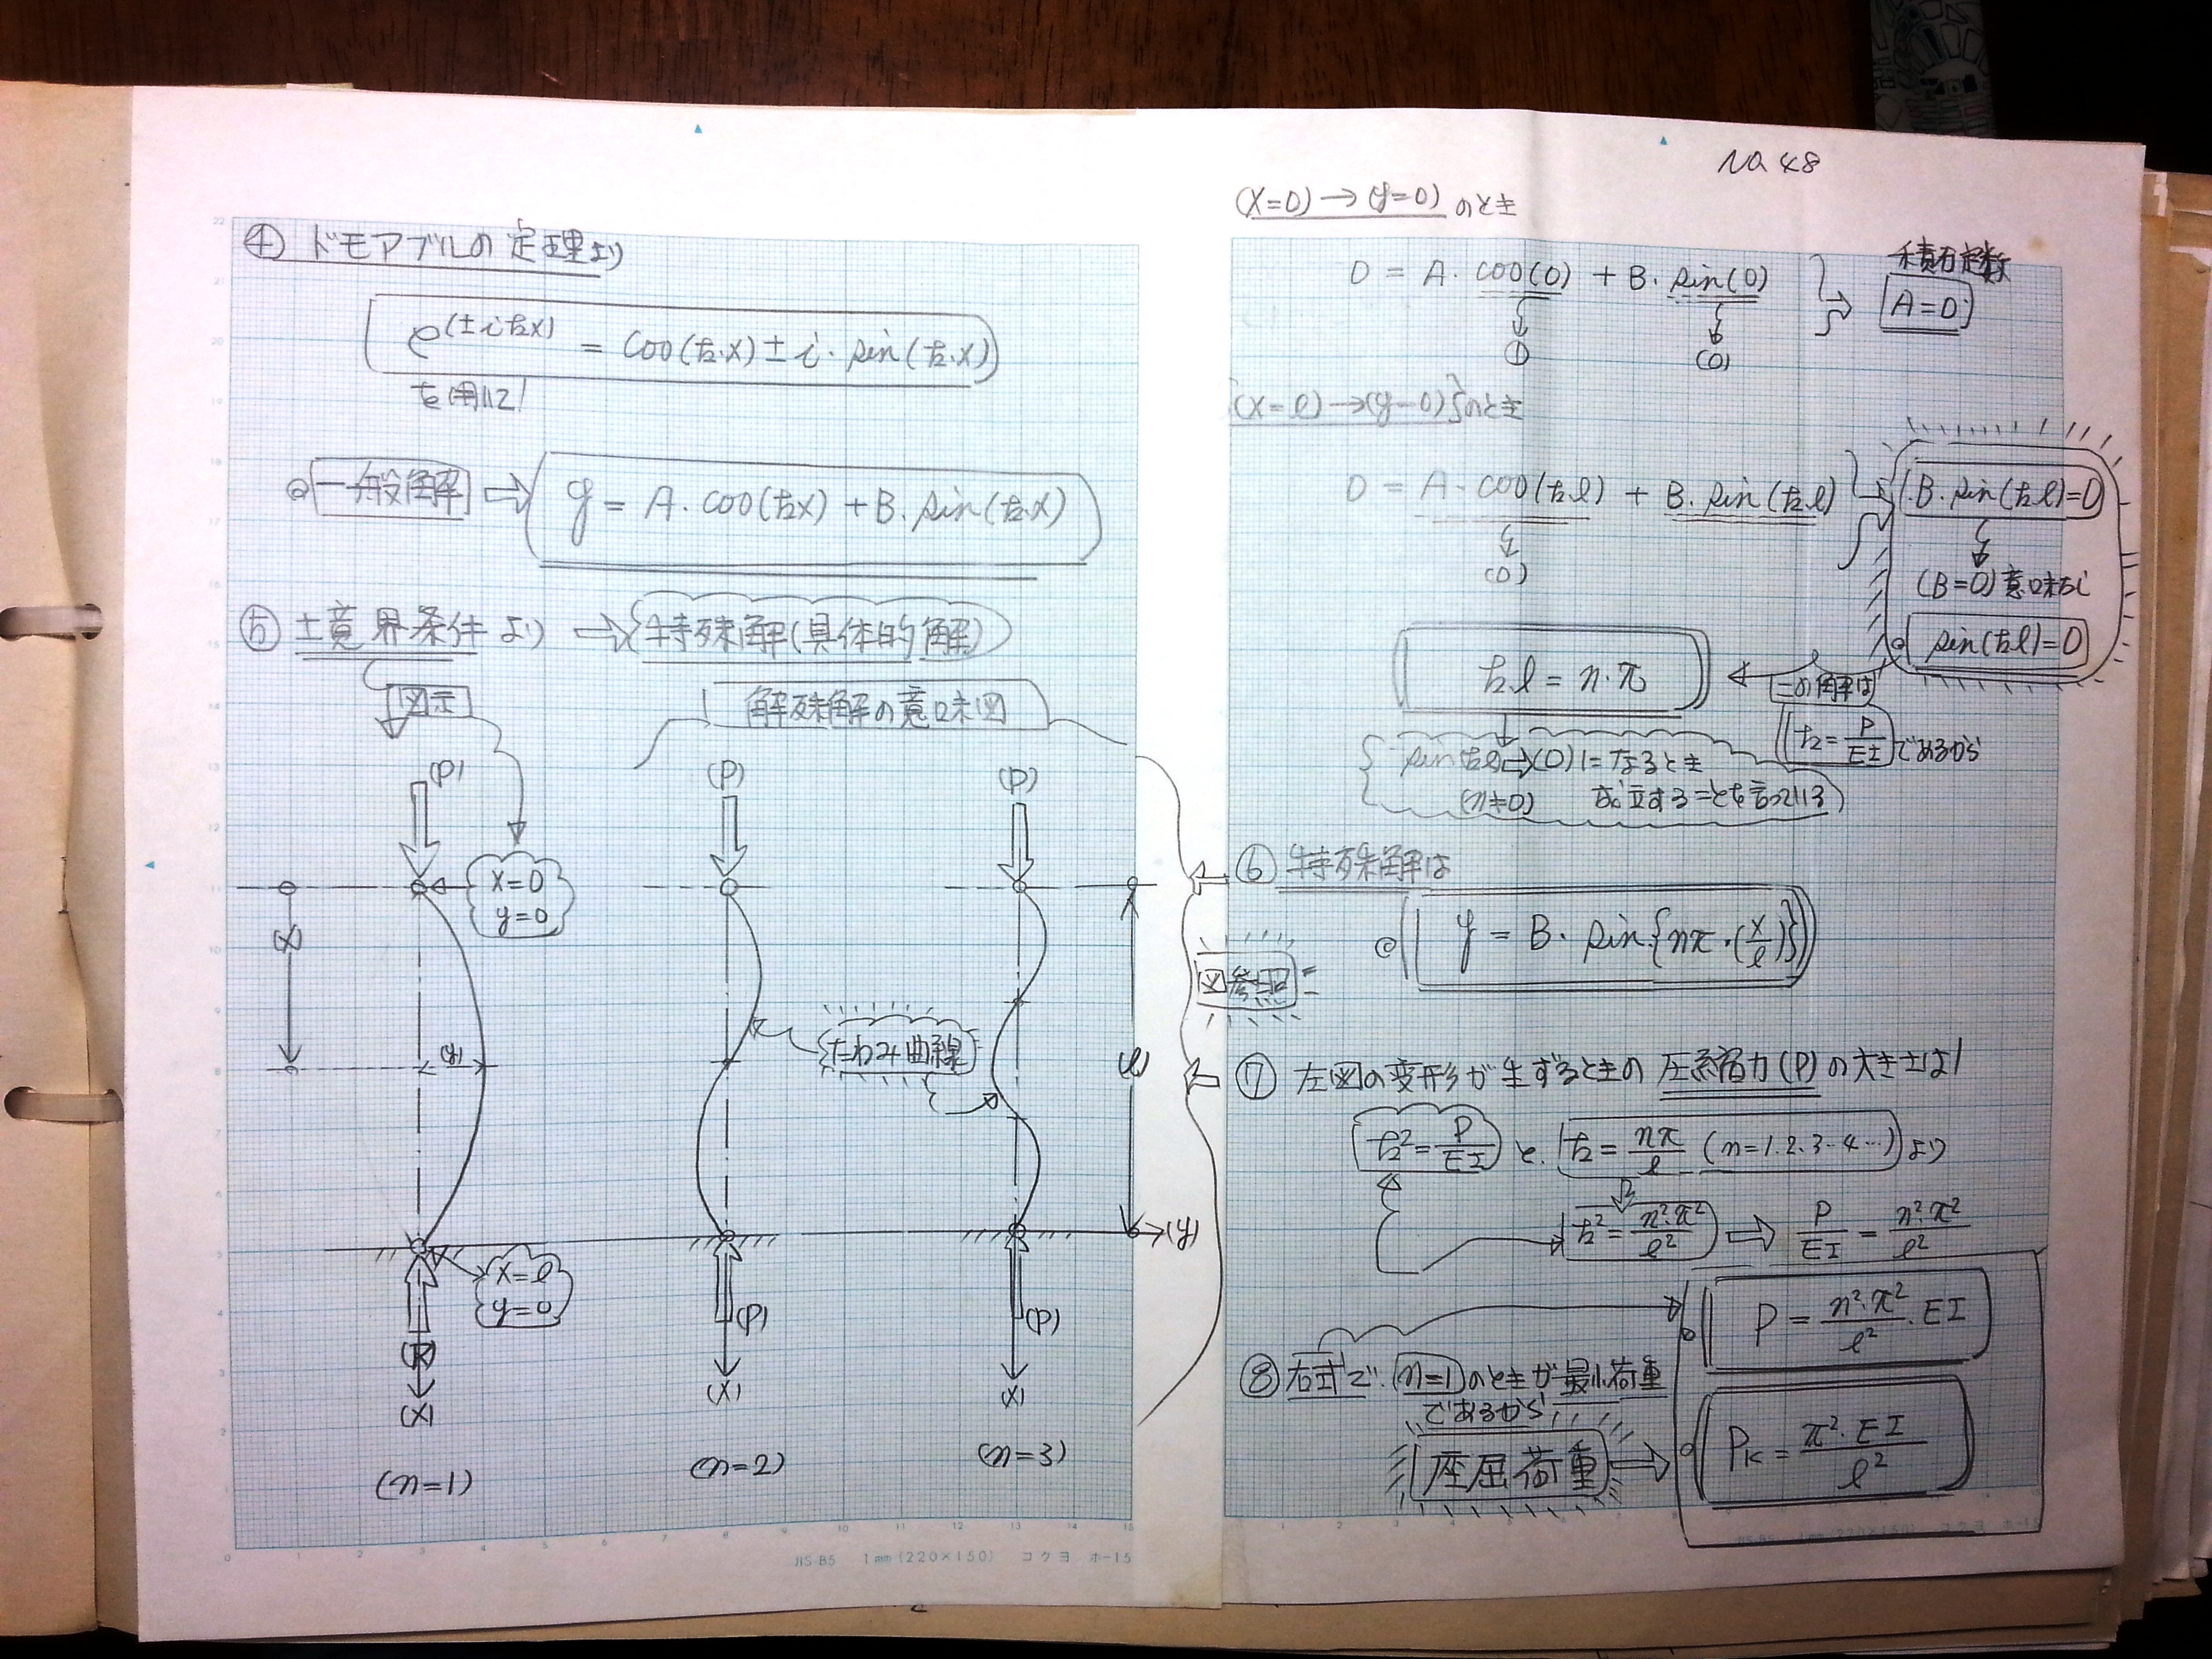 ④ ドモアブルの定理より
e^(±ikx) = cos(k.x) ± i・sin(k.x)
を用いて!
一般解 ⇨ y = A・cos(kx) + B・sin(k.x)
⑤ 境界条件より ⇨ 特殊解(具体的解)
図示
解殊解の意味図
(P) (P) (P)
x=0
y=0
x
(y)
たわみ曲線
l
(y)
x=l
y=0
(P) (P)
(X) (X) (X)
(n=1) (n=2) (n=3)
JIS-B5 1mm(220×150) コクヨ ホ-15
No 48
(X=0)→(y=0) のとき
0 = A・cos(0) + B・sin(0)
積分定数
A=0
① (0)
(X=l)→(y=0)}のとき
0 = A・cos(k.l) + B・sin(k.l)
(0)
B・sin(k.l)=0
(B=0)意味なし
sin(k.l)=0
この解は
k.l = n・π
k2=P/EI であるから
sin(k.l)⇨(0)になるとき
(n≠0) 成立することを言っている
⑥ 特殊解は
y = B・sin{nπ・(x/l)}
図参照
⑦ 左図の変形が生ずるときの圧縮力(P)の大きさは!
k²=P/EI と. k=nπ/l (n=1.2.3-4…)より
k²=n²・π²/l² ⇨ P/EI = n²・π²/l²
P = n²・π²/l²・EI
⑧ 右式で.(n=1)のときが最小荷重
であるから
座屈荷重 ⇨ PK = π²・EI/l²
JIS-B5 1mm(220×150) コクヨ ホ-15